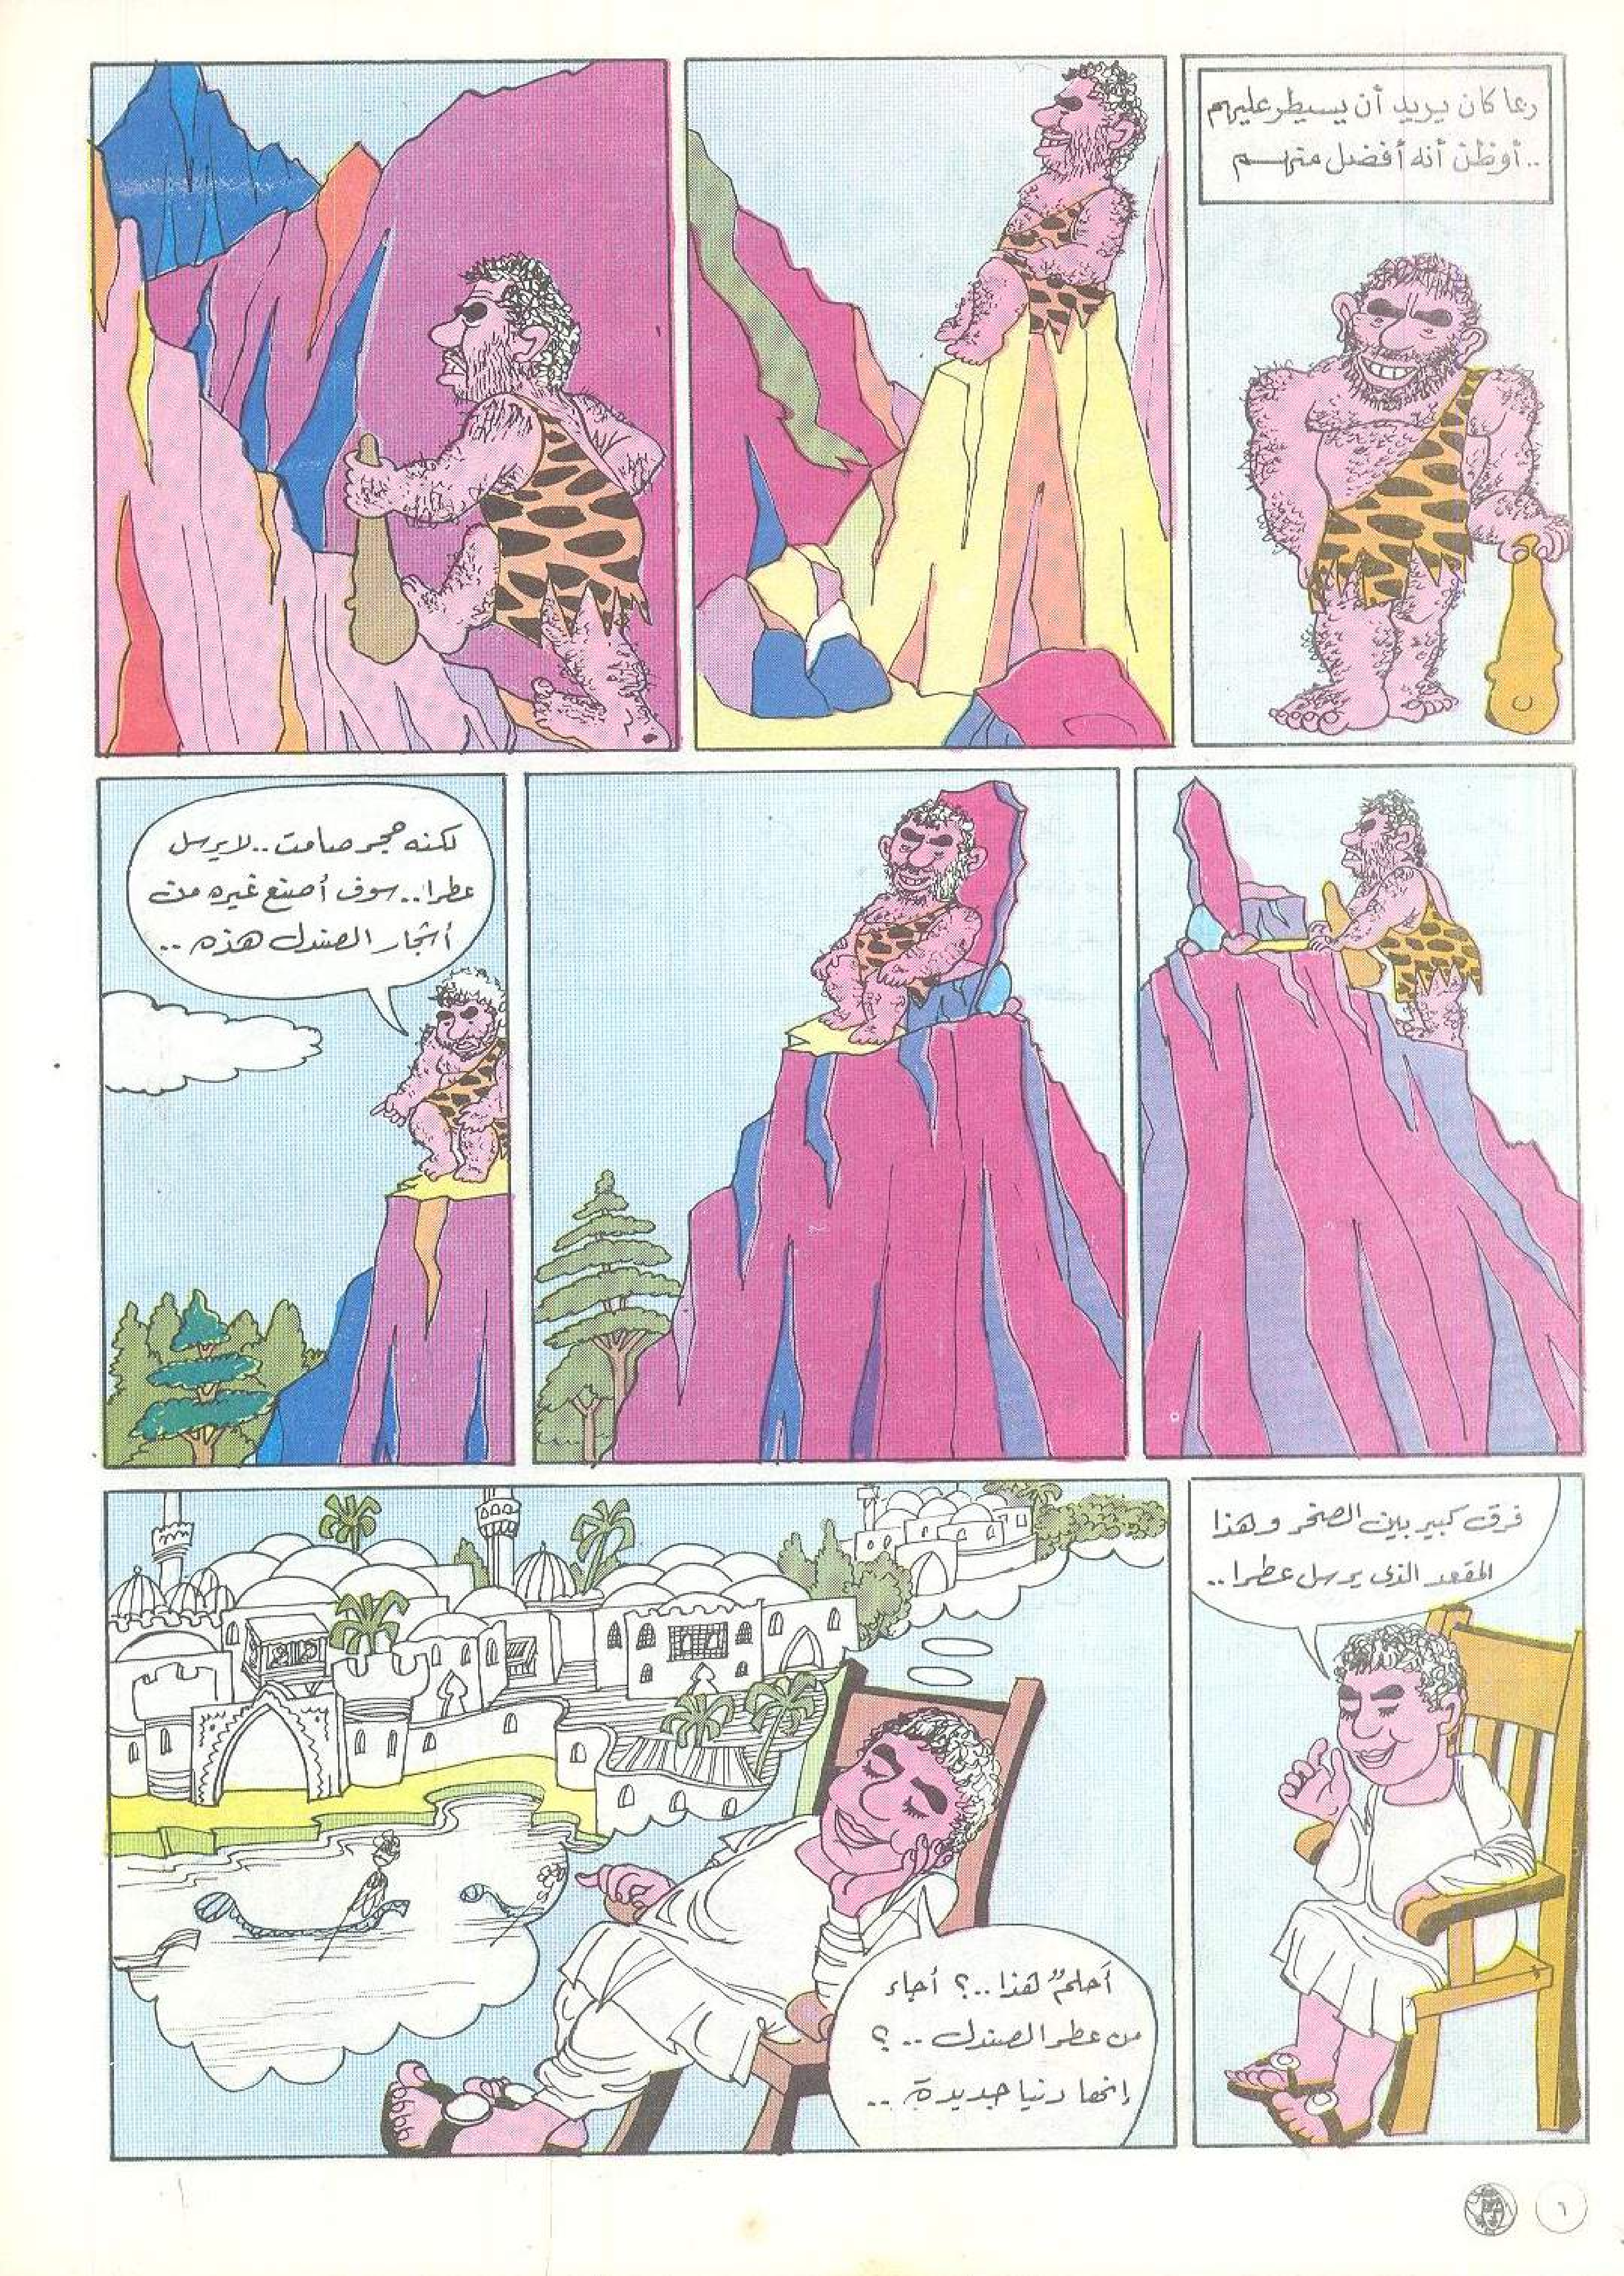 ربما كان يريد أن يسيطر عليهم
.. أو ظن أنه أفضل منهم
لكنه حجر صامت .. لا يرسل
عطرا .. سوف أصنع غيره من
أشجار الصندل هذه ..
فرق كبير بين الصخر وهذا
المقعد الذى يرسل عطرا ..
أحلمٌ هذا .. ؟ أجاء
من عطر الصندل .. ؟
إنها دنيا جديدة ..
٦